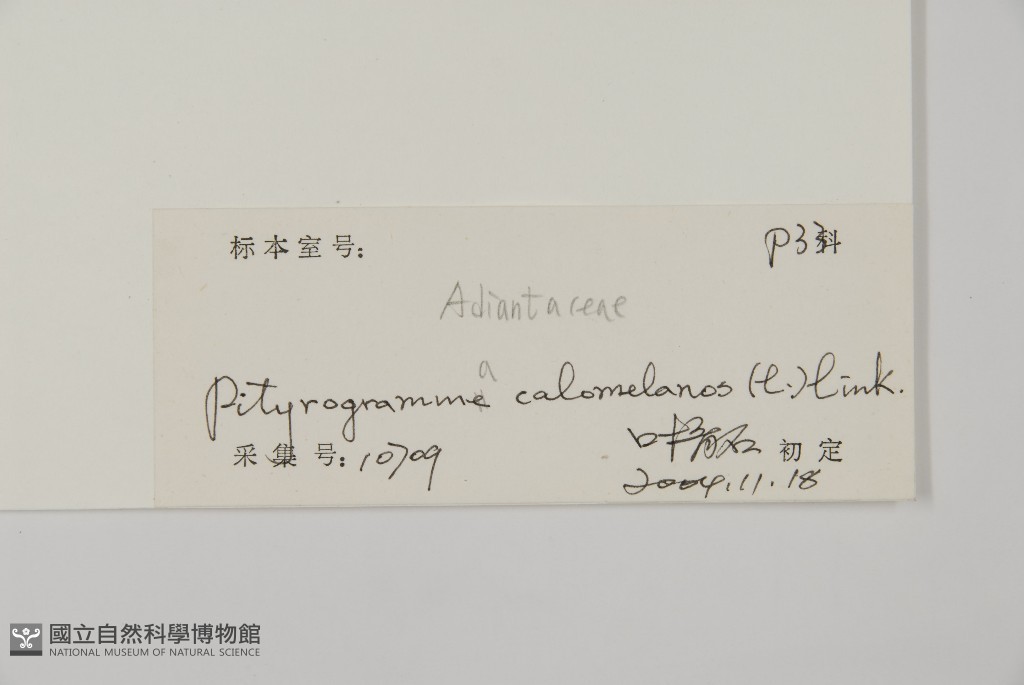 标本室号: P33科
Adiantaceae
a
Pityrogramme calomelanos (L.) Link.
采集号: 10709 叶 初定
2004.11.18
國立自然科學博物館
NATIONAL MUSEUM OF NATURAL SCIENCE